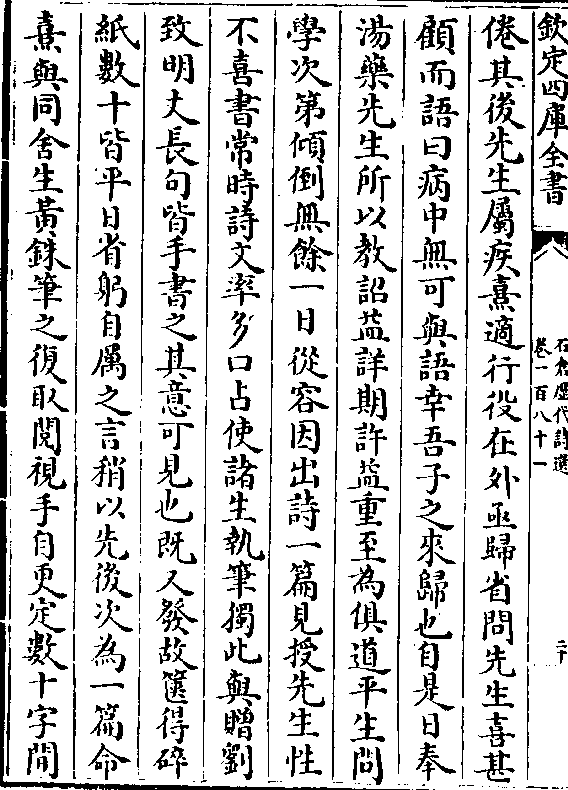 欽定四庫全書
石倉歷代詩選
卷一百八十一
二十
倦其後先生屬疾熹適行役在外亟歸省問先生喜甚
顧而語曰病中無可與語幸吾子之來歸也自是日奉
湯藥先生所以教詔益詳期許益重至為俱道平生問
學次第傾倒無餘一日從容因出詩一篇見授先生性
不喜書常時詩文率多口占使諸生執筆獨此與贈劉
致明丈長句皆手書之其意可見也既又發故篋得碎
紙數十皆平日省躬自厲之言稍以先後次為一篇命
熹與同舍生黃銖筆之復取閱視手自更定數十字間